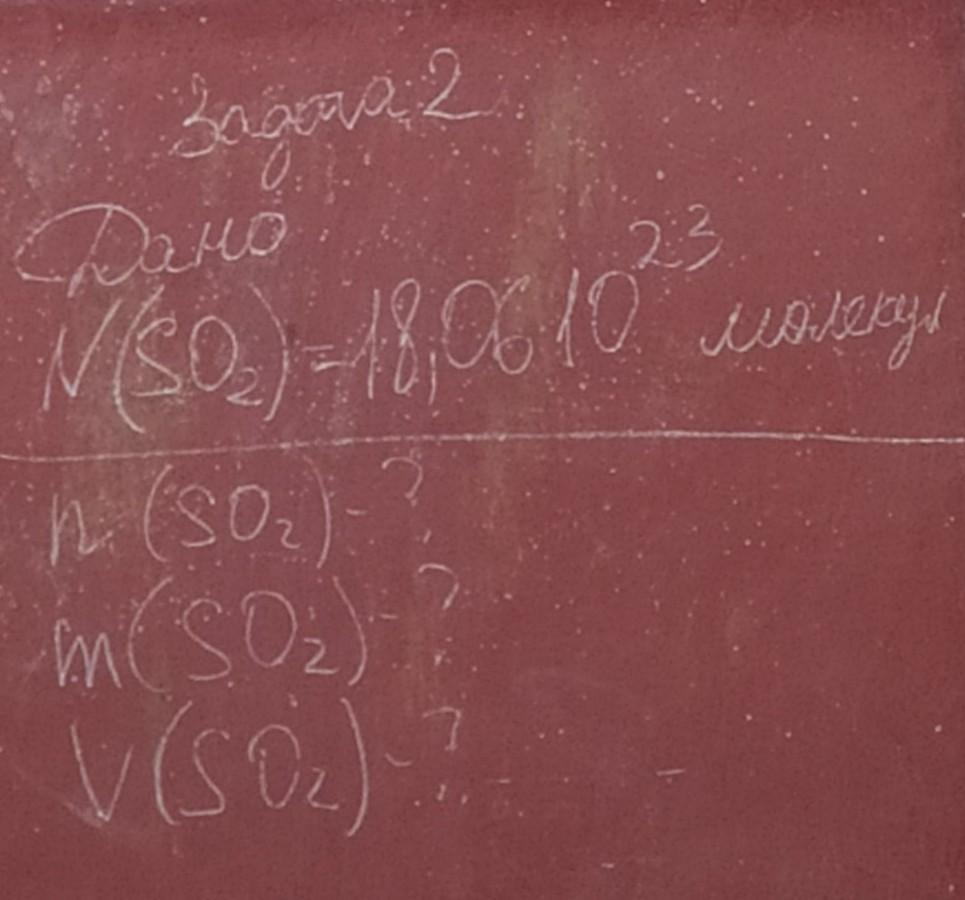 Задача 2
Дано
N(SO₂)=18,06 10²³ молекул
n(SO₂)-?
m(SO₂)-?
V(SO₂)-?